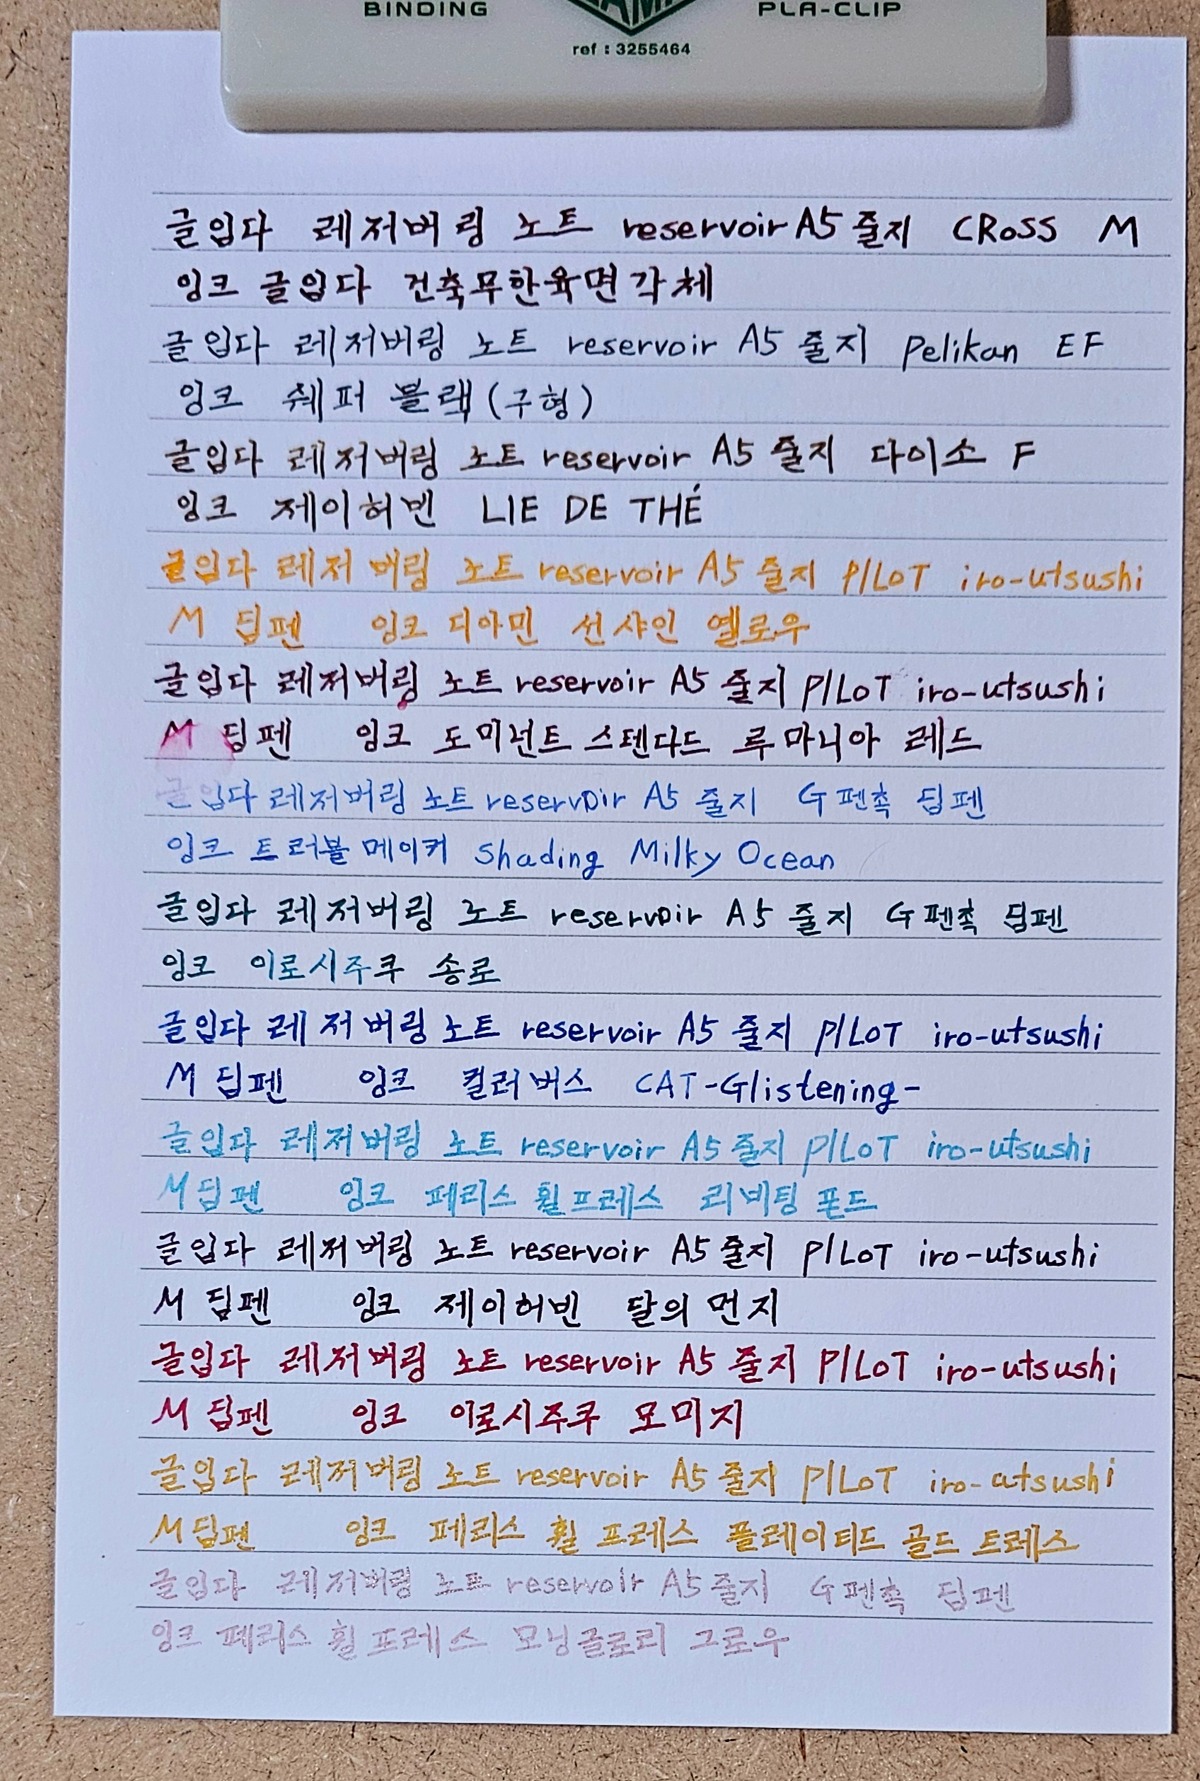 BINDING PLA-CLIP
ref : 3255464
글입다 레저버링 노트 reservoir A5 줄지 CRoSS M
잉크 글입다 건축무한육면각체
글입다 레저버링 노트 reservoir A5 줄지 pelikan EF
잉크 쉐퍼 블랙(구형)
글입다 레저버링 노트 reservoir A5 줄지 다이소 F
잉크 제이허빈 LIE DE THÉ
글입다 레저버링 노트 reservoir A5 줄지 PILoT iro-utsushi
M 딥펜 잉크 디아민 선샤인 옐로우
글입다 레저버링 노트 reservoir A5 줄지 PILoT iro-utsushi
M 딥펜 잉크 도미넌트 스텐다드 루마니아 레드
글입다 레저버링 노트 reservoir A5 줄지 G펜촉 딥펜
잉크 트러블메이커 Shading Milky Ocean
글입다 레저버링 노트 reservoir A5 줄지 G펜촉 딥펜
잉크 이로시주쿠 송로
글입다 레저버링 노트 reservoir A5 줄지 PILoT iro-utsushi
M 딥펜 잉크 컬러버스 CAT-Glistening-
글입다 레저버링 노트 reservoir A5 줄지 PILoT iro-utsushi
M 딥펜 잉크 페리스 휠프레스 리비팅 폰드
글입다 레저버링 노트 reservoir A5 줄지 PILoT iro-utsushi
M 딥펜 잉크 제이허빈 달의 먼지
글입다 레저버링 노트 reservoir A5 줄지 PILoT iro-utsushi
M 딥펜 잉크 이로시주쿠 모미지
글입다 레저버링 노트 reservoir A5 줄지 PILoT iro-utsushi
M 딥펜 잉크 페리스 휠 프레스 플레이티드 골드 트레스
글입다 레저버링 노트 reservoir A5 줄지 G펜촉 딥펜
잉크 페리스 휠 프레스 모닝글로리 그로우